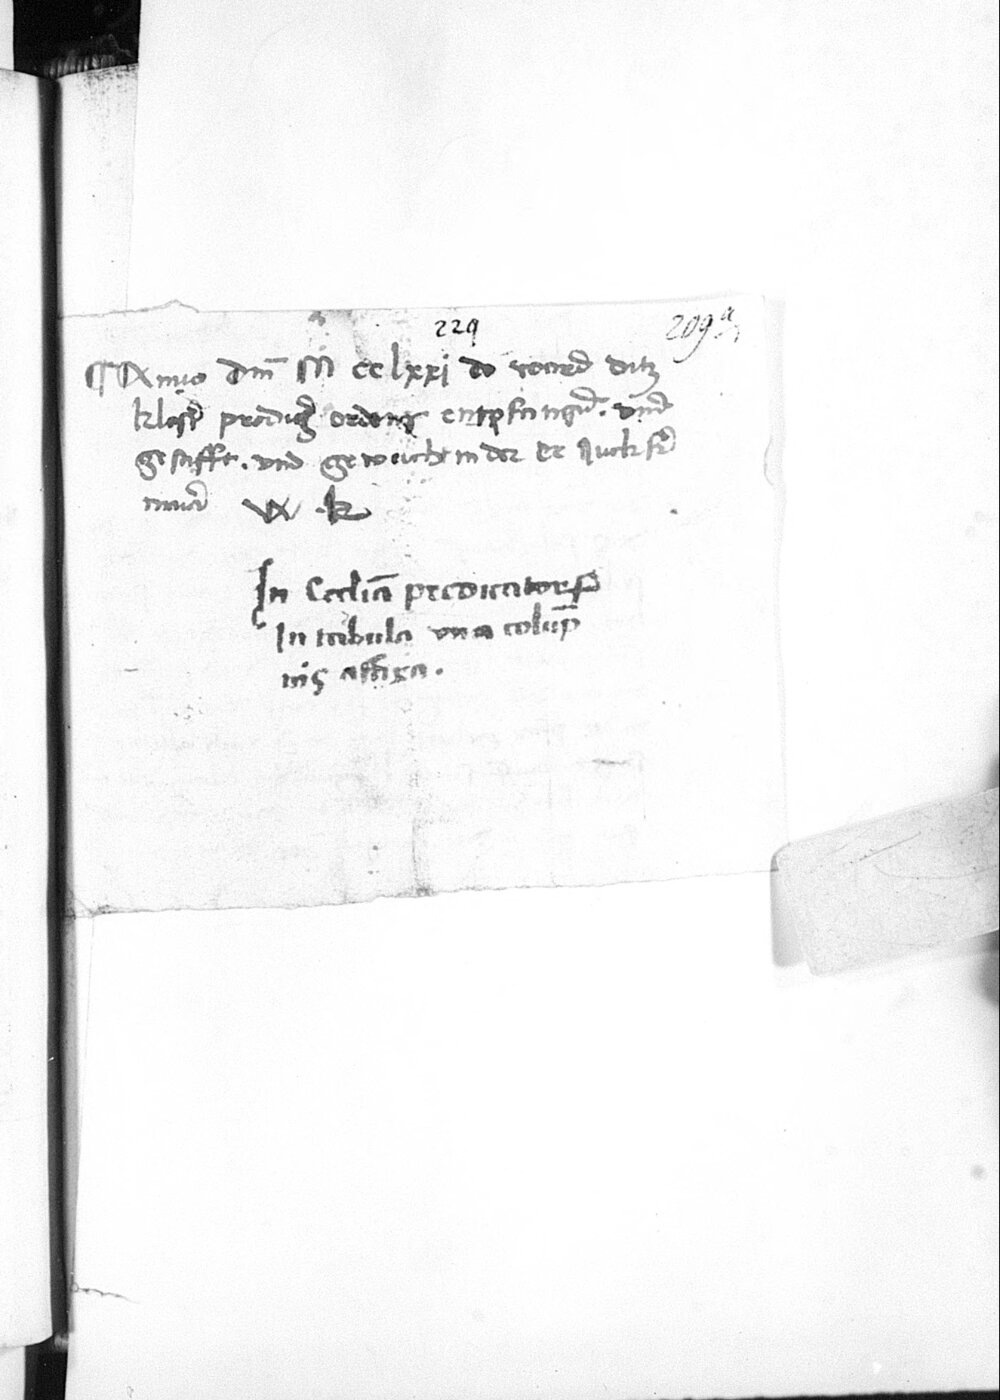 229
209 a
¶ Anno dm̄ M cclxxi do ward ditz
kloſt̄ prediḡ ordens entpfangē. vnd
geſtifft. vnd gewicht in der er
In Eccl̄ia predicatorꝝ
In tabula vna colūp
nis affixa.